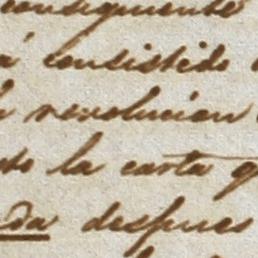 consiguiente
á consistido
revolucion
la carta q
da despues